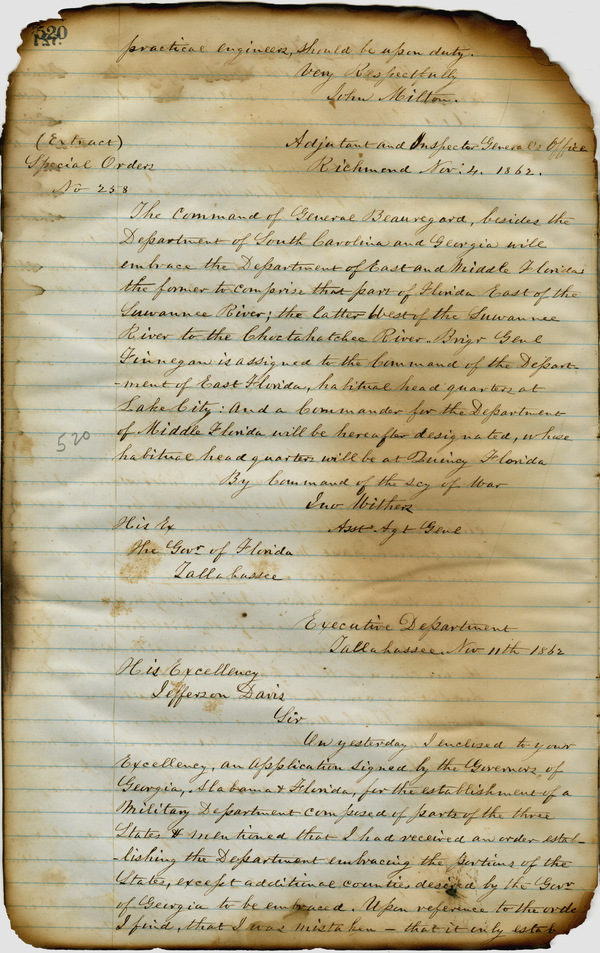 520
practical engineers, should be upon duty.
Very Respectfully
John Milton.
(Extract)
Special Orders
No 258
Adjutant and Inspector General's Office
Richmond Nov: 4. 1862.
The command of General Beauregard, besides the
Department of South Carolina and Georgia will
embrace the Department of East and Middle Florida
the former to comprise that part of Florida East of the
Suwannee River; the latter West of the Suwannee
River to the Choctahatchee River. Brigr Genl
Finnegan is assigned to the Command of the Depart-
-ment of East Florida, habitual head quarters at
Lake City: And a Commander for the Department
of Middle Florida will be hereafter designated, whose
520
habitual head quarters will be at Quincy Florida
By Command of the Scy of War
Jno Withers
Asst Agt Genl
His Ex
The Govr of Florida
Tallahassee
Executive Department
Tallahassee Nov 11th 1862
His Excellency
Jefferson Davis
Sir
On yesterday I enclosed to your
Excellency, an Application signed by the Governors of
Georgia, Alabama & Florida, for the establishment of a
Military Department composed of parts of the three
States & mentioned that I had received an order estab-
-lishing the Department embracing the portions of the
States, except additional counties desired by the Govr
of Georgia to be embraced. Upon reference to the orde
I find, that I was mistaken — that it only estab